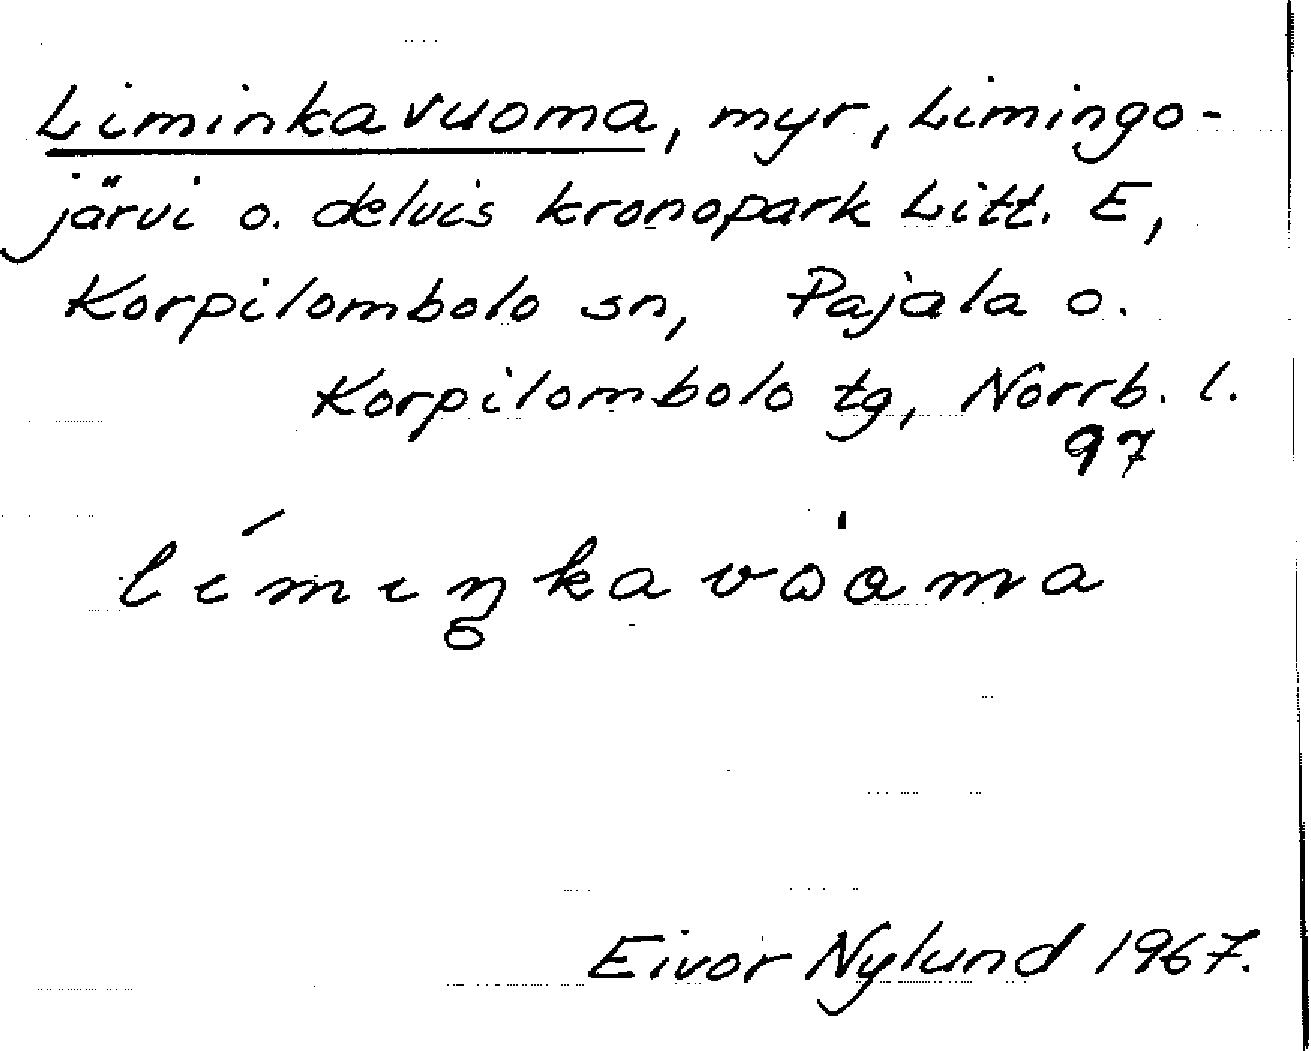 Liminkavuoma, myr, Limingo-
järvi o. delvis kronopark Litt. E,
Korpilombolo sn, Pajala o.
Korpilombolo tg, Norrb. l.
97
Eivor Nylund 1967.